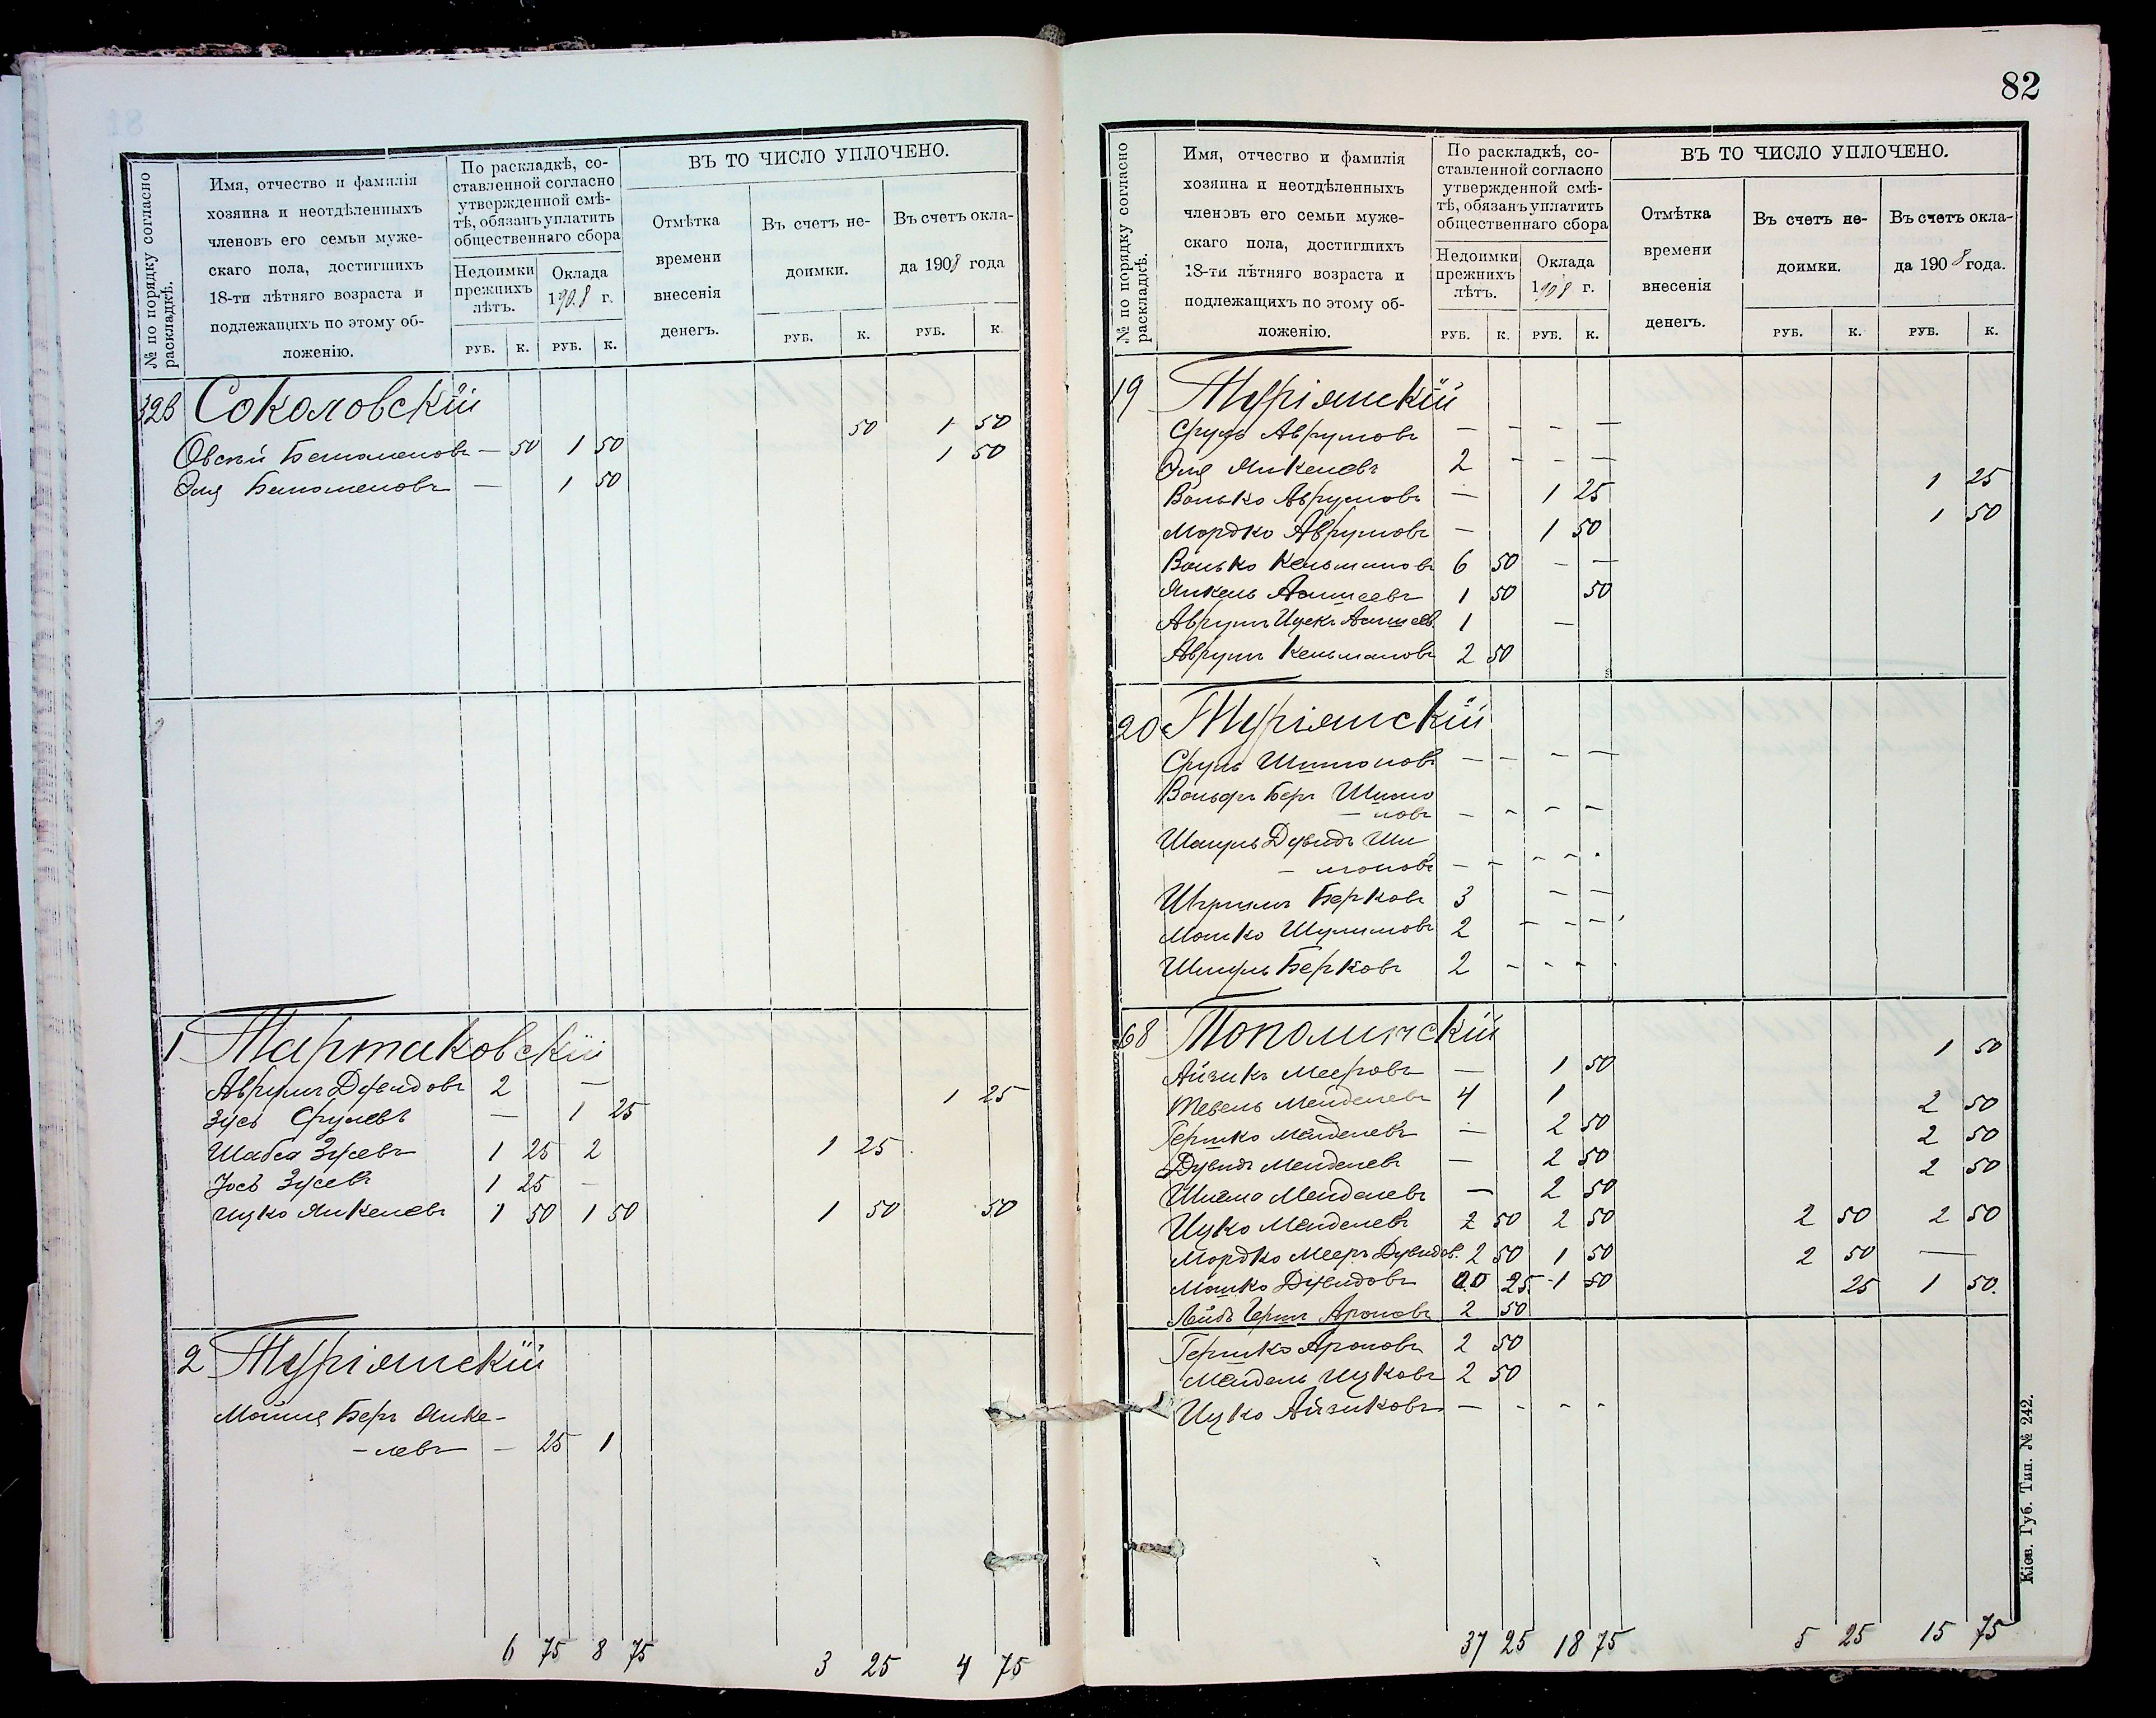 82
№ по порядку согласно раскладкѣ.
Имя, отчество и фамилія
хозяина и неотдѣленныхъ
членовъ его семьи муже-
скаго пола, достигшихъ
18-ти лѣтняго возраста и
подлежащихъ по этому об-
ложенію.
По раскладкѣ, со-
ставленной согласно
утвержденной смѣ-
тѣ, обязанъ уплатить
общественнаго сбора
Недоимки
прежнихъ
лѣтъ.
Оклада
1908 г.
РУБ. К. РУБ. К.
ВЪ ТО ЧИСЛО УПЛОЧЕНО.
Отмѣтка
времени
внесенія
денегъ.
Въ счетъ не-
доимки.
РУБ. К.
Въ счетъ окла-
да 1908 года
РУБ. К.
328 Соколовскій
50 1 50
Овсѣй — 50 1 50
1 50
Эля — 1 50
1 Тартаковскій
Аврумъ Дувидовъ 2 —
Зусь Срулевъ — 1 25 1 25
Шабса Зусевъ 1 25 2 1 25
Іось Зусевъ 1 25 —
Ицко Янкелевъ 1 50 1 50 1 50 50
2 Туріянскій
Мойше Беръ Янке-
— левъ — 25 1
6 75 8 75 3 25 4 75
№ по порядку согласно раскладкѣ.
Имя, отчество и фамилія
хозяина и неотдѣленныхъ
членовъ его семьи муже-
скаго пола, достигшихъ
18-ти лѣтняго возраста и
подлежащихъ по этому об-
ложенію.
По раскладкѣ, со-
ставленной согласно
утвержденной смѣ-
тѣ, обязанъ уплатить
общественнаго сбора
Недоимки
прежнихъ
лѣтъ.
Оклада
1908 г.
РУБ. К. РУБ. К.
ВЪ ТО ЧИСЛО УПЛОЧЕНО.
Отмѣтка
времени
внесенія
денегъ.
Въ счетъ не-
доимки.
РУБ. К.
Въ счетъ окла-
да 1908 года.
РУБ. К.
19 Туріянскій
Сруль Аврумовъ — — — —
Эля Янкелевъ 2 — — —
Волько Аврумовъ — 1 25 1 25
Мордко Аврумовъ — 1 50 1 50
Волько Кельмановъ 6 50 — —
Янкель 1 50 50
Аврумъ Ицекъ 1 —
Аврумъ Кельмановъ 2 50
20 Туріянскій
Сруль Шимоновъ — — — —
Вольфъ Беръ Шимо
— новъ — — — —
Шмуль Дувидъ Ши
— моновъ — — — —
Берковъ 3 — —
Мошко Шулимовъ 2 — — —
Шмуль Берковъ 2 — — —
68
Айзикъ Мееровъ — 1 50 1 50
Тевель Менделевъ 4 1
Гершко Менделевъ — 2 50 2 50
Дувидъ Менделевъ — 2 50 2 50
Шлема Менделевъ — 2 50 2 50
Ицко Менделевъ 2 50 2 50 2 50 2 50
Мордко Мееръ Дувидов. 2 50 1 50 2 50 —
Мошко Дувидовъ 20 25 1 50 25 1 50.
Лейбъ Гершъ Ароновъ 2 50
Гершко Ароновъ 2 50
Мендель Ицковъ 2 50
Ицко Айзиковъ — — — —
37 25 18 75 5 25 15 75
Кіев. Губ. Тип. № 242.